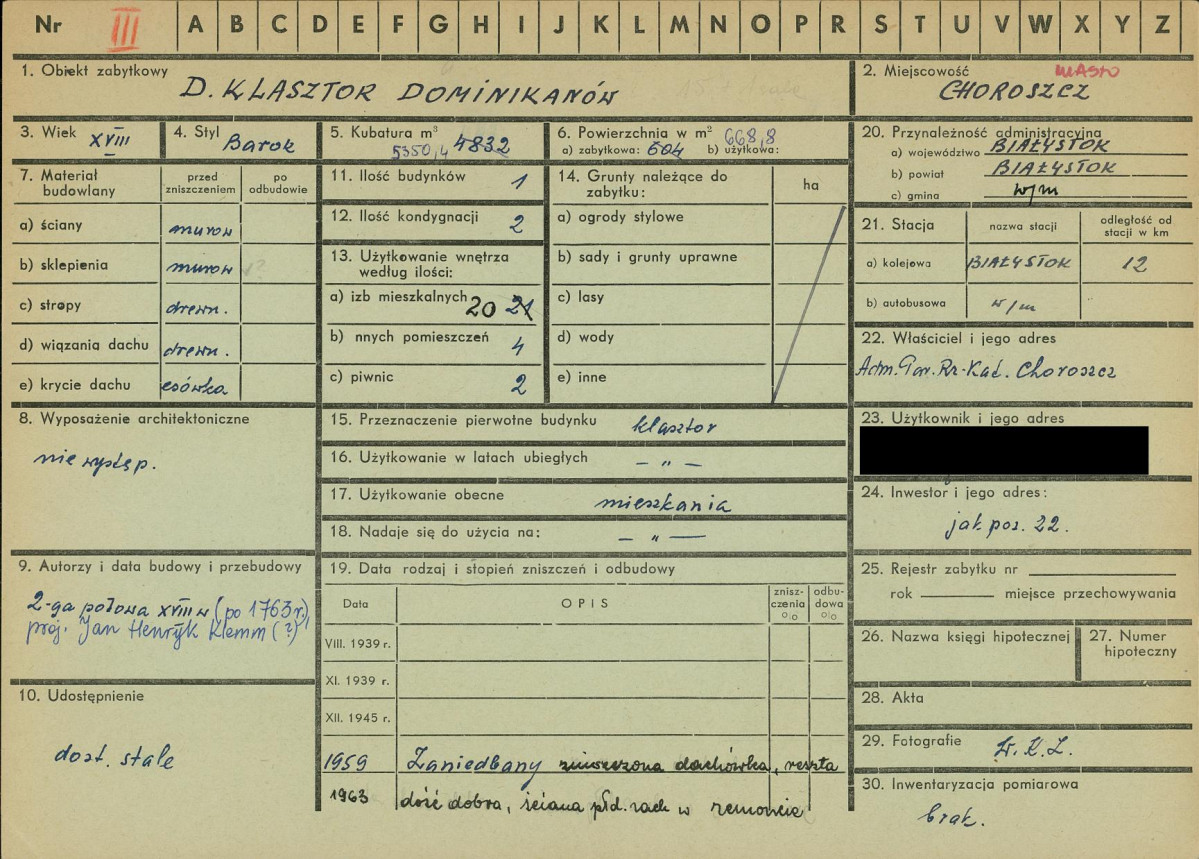 Nr III A B C D E F G H I J K L M N O P R S T U V W X Y Z
1. Obiekt zabytkowy
D. KLASZTOR DOMINIKANÓW
2. Miejscowość
MIASTO
CHOROSZCZ
3. Wiek XVIII
4. Styl Barok
5. Kubatura m³ 4832
5350,4
6. Powierzchnia w m² 668,8
a) zabytkowa: 604 b) użytkowa:
20. Przynależność administracyjna
a) województwo BIAŁYSTOK
b) powiat BIAŁYSTOK
c) gmina w/m
7. Materiał budowlany
przed zniszczeniem
po odbudowie
a) ściany murow
b) sklepienia murow ?
c) stropy drewn.
d) wiązania dachu drewn.
e) krycie dachu esówka
11. Ilość budynków 1
12. Ilość kondygnacji 2
13. Użytkowanie wnętrza
według ilości:
a) izb mieszkalnych 20 21
b) nnych pomieszczeń 4
c) piwnic 2
14. Grunty należące do
zabytku:
ha
a) ogrody stylowe
b) sady i grunty uprawne
c) lasy
d) wody
e) inne
21. Stacja
nazwa stacji
odległość od
stacji w km
a) kolejowa BIAŁYSTOK 12
b) autobusowa w/m
22. Właściciel i jego adres
Adm. Par. Rz-Kat. Choroszcz
8. Wyposażenie architektoniczne
nie występ.
15. Przeznaczenie pierwotne budynku klasztor
16. Użytkowanie w latach ubiegłych — „ —
17. Użytkowanie obecne mieszkania
18. Nadaje się do użycia na: — „ —
23. Użytkownik i jego adres
24. Inwestor i jego adres:
jak poz. 22.
9. Autorzy i data budowy i przebudowy
2-ga połowa XVIII w (po 1763 r.)
proj. Jan Henryk Klemm (?)
19. Data rodzaj i stopień zniszczeń i odbudowy
Data
OPIS
znisz-
czenia
%
odbu-
dowa
%
VIII. 1939 r.
XI. 1939 r.
XII. 1945 r.
1959 Zaniedbany zniszczona dachówka, reszta
1963 dość dobra, ściana płd. zach w remoncie
25. Rejestr zabytku nr
rok miejsce przechowywania
26. Nazwa księgi hipotecznej
27. Numer
hipoteczny
10. Udostępnienie
dost. stale
28. Akta
29. Fotografie
30. Inwentaryzacja pomiarowa
brak.